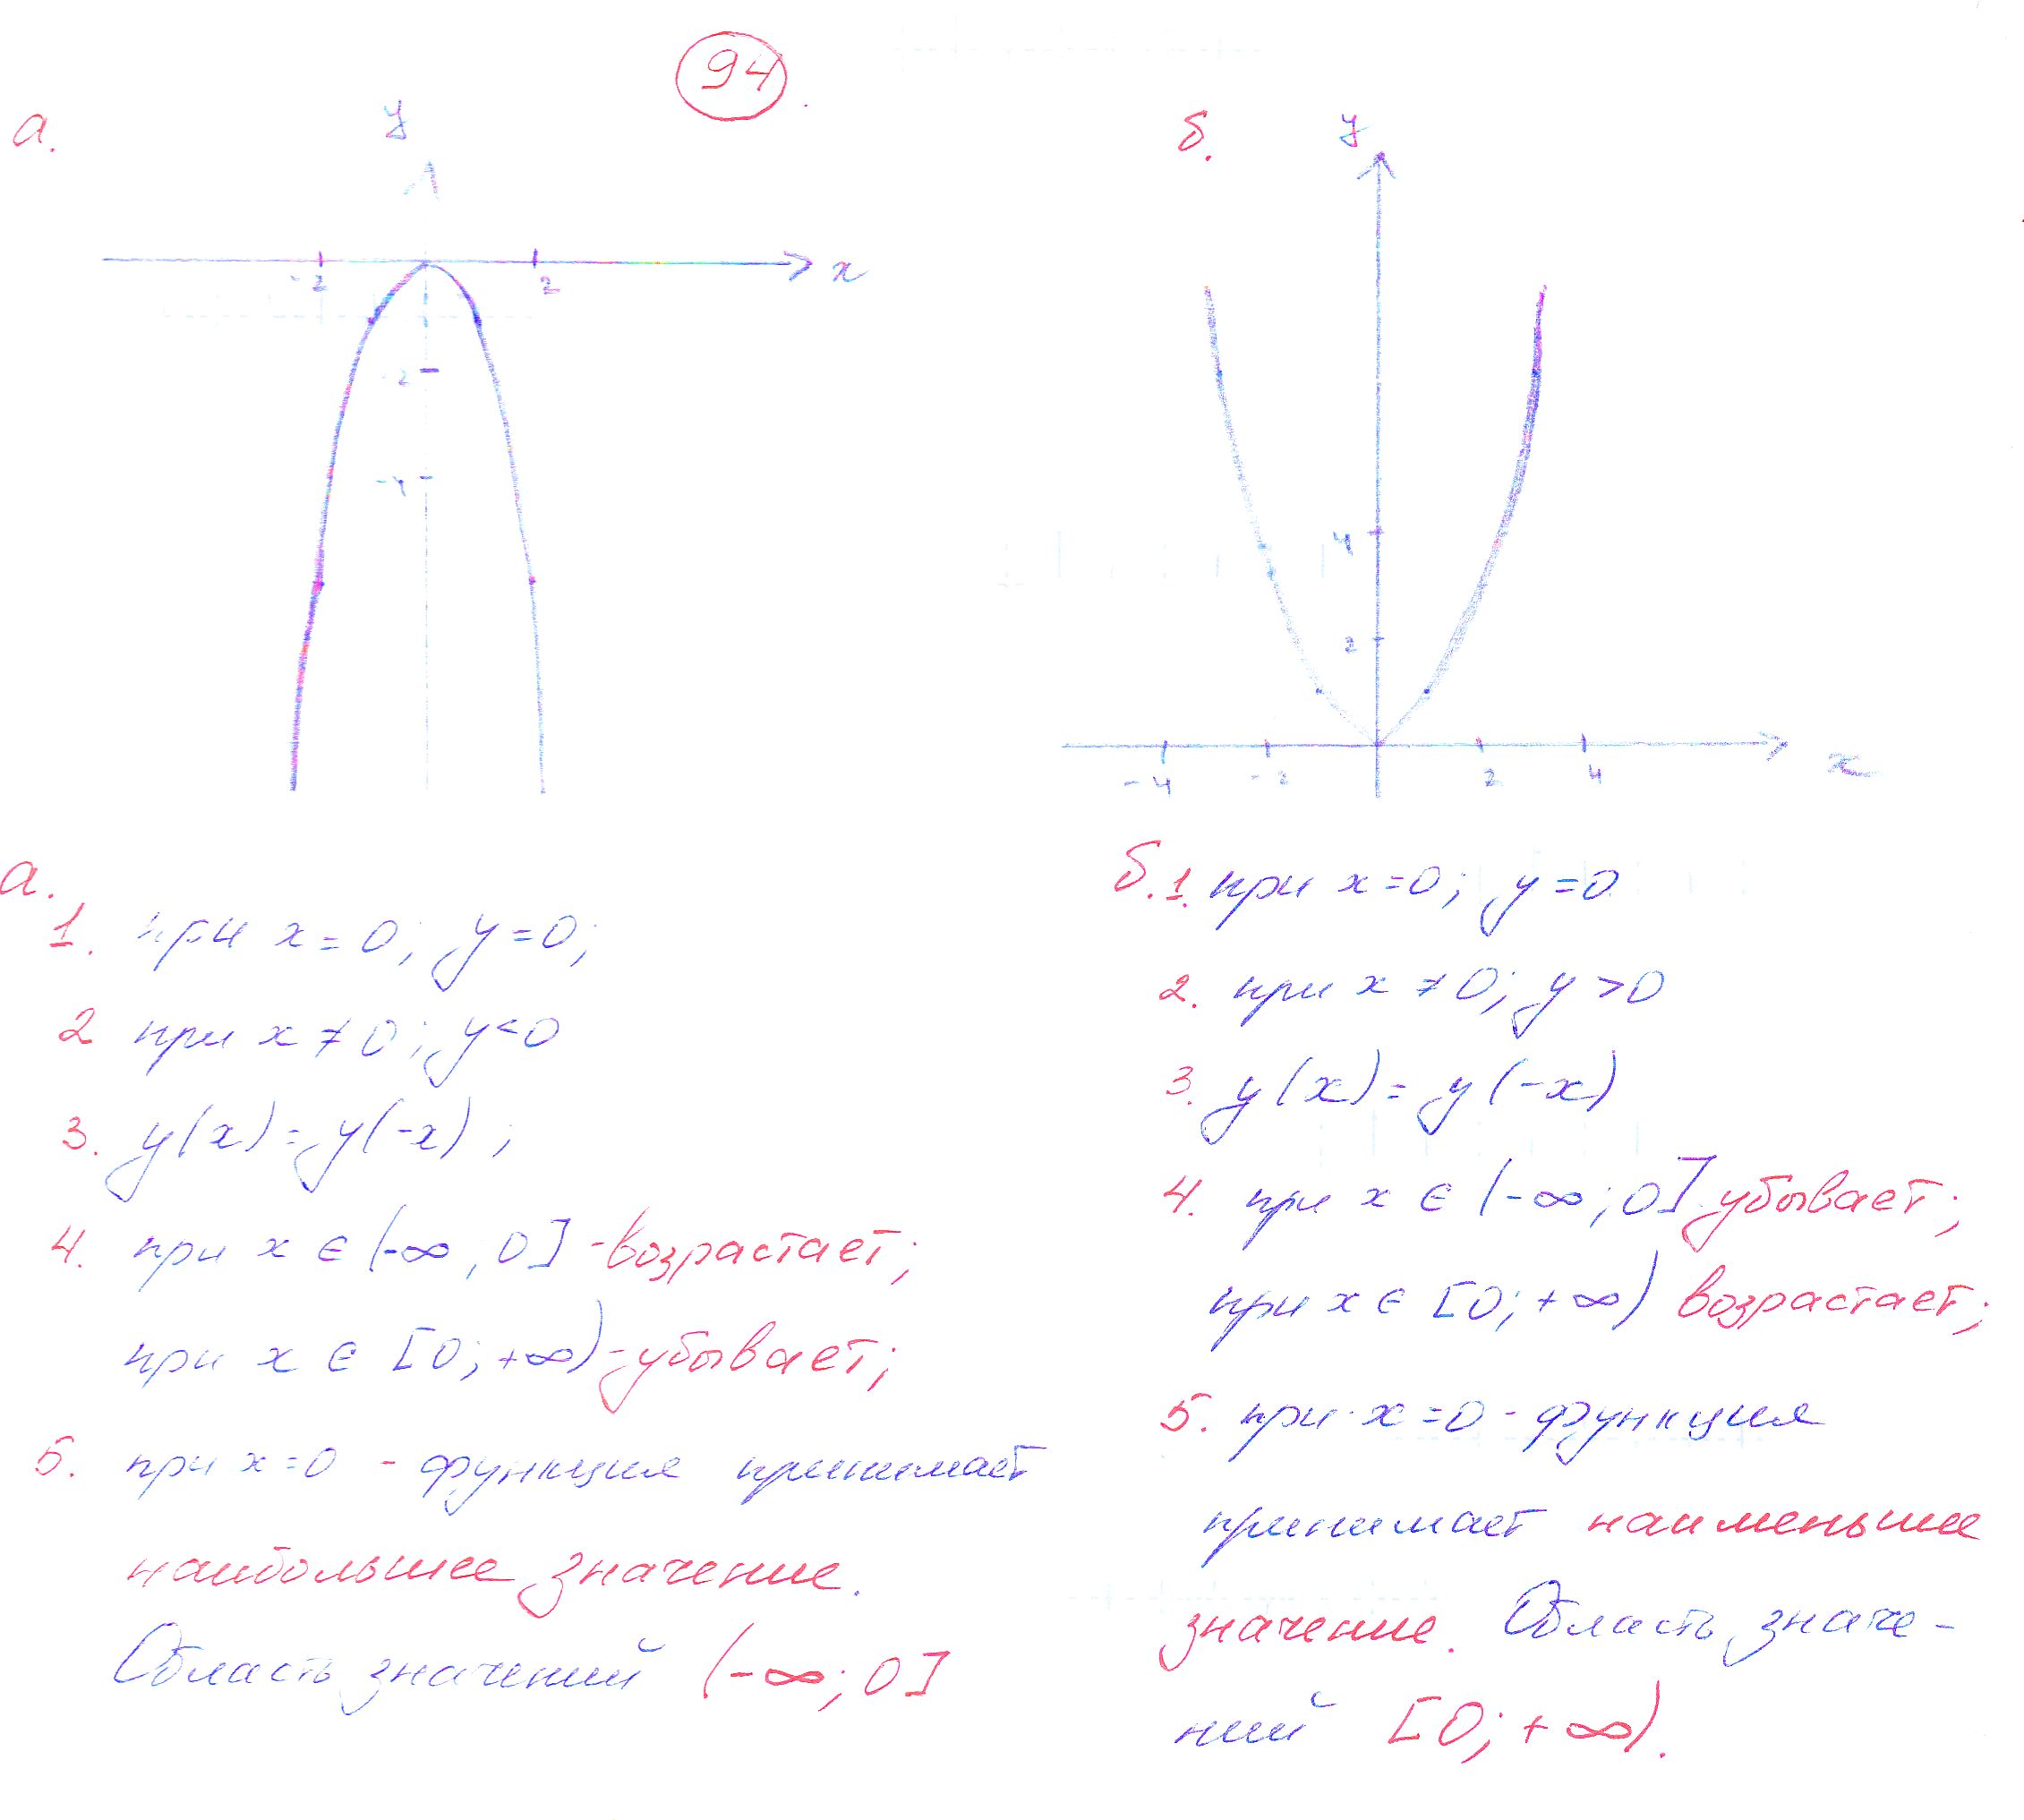 94
а.
y
-2
2
x
-2
-4
б.
y
4
2
-4
-2
2
4
x
а.
1. при x = 0; y = 0;
2 при x ≠ 0; y < 0
3. y(x) = y(-x);
4. при x ∈ (-∞, 0] - возрастает;
при x ∈ [0; +∞) - убывает;
5. при x = 0 - функция принимает
наибольшее значение.
Область значений (-∞; 0]
б. 1. при x = 0; y = 0
2. при x ≠ 0; y > 0
3. y(x) = y(-x)
4. при x ∈ (-∞; 0] убывает;
при x ∈ [0; +∞) возрастает;
5. при x = 0 - функция
принимает наименьшее
значение. Область значе-
ний [0; +∞).